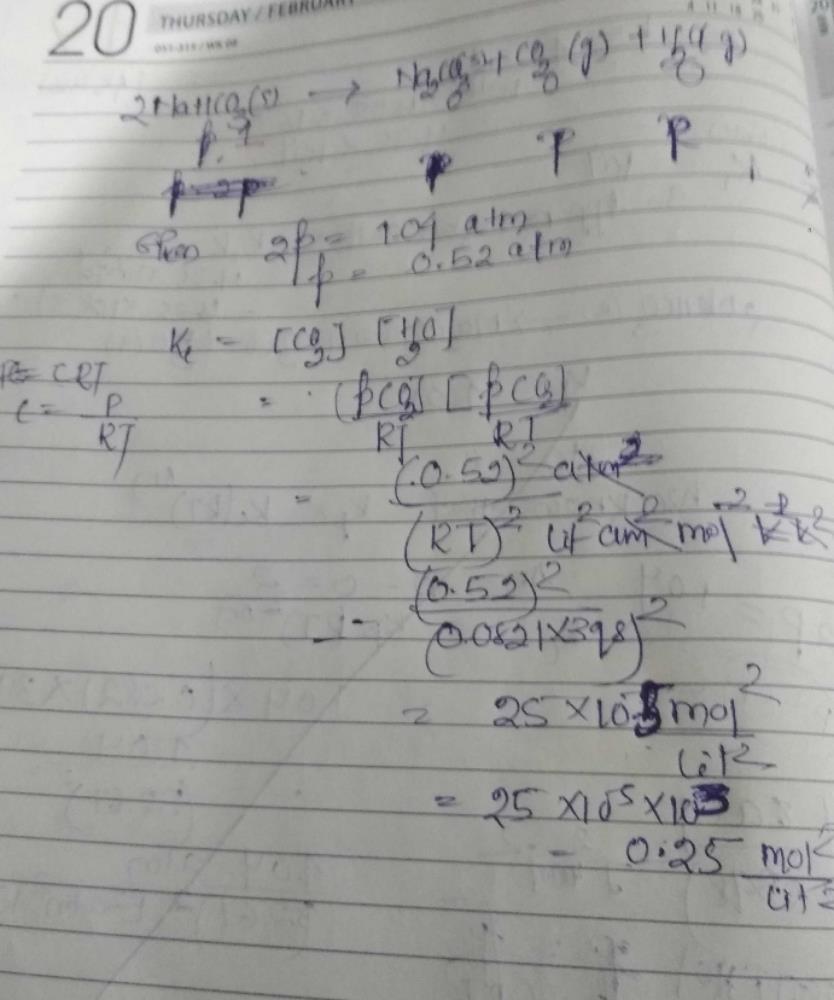 20 THURSDAY / FEBRUARY
2NaHCO3(s) → Na2CO3(s) + CO2 (g) + H2O(g)
p p p
2p = 1.04 atm
p = 0.52 atm
Kc = [CO2] [H2O]
P = CRT
C = P/RT
= [pCO2]/RT [pCO2]/RT
= (0.52)^2 atm^2
(RT)^2 lit^2 atm^2 mol^-2
= (0.52)^2
(0.0821×398)^2
= 25 ×10^-5 mol^2
lit^2
= 25 ×10^-5 ×10^3
= 0.25 mol^2
lit^2